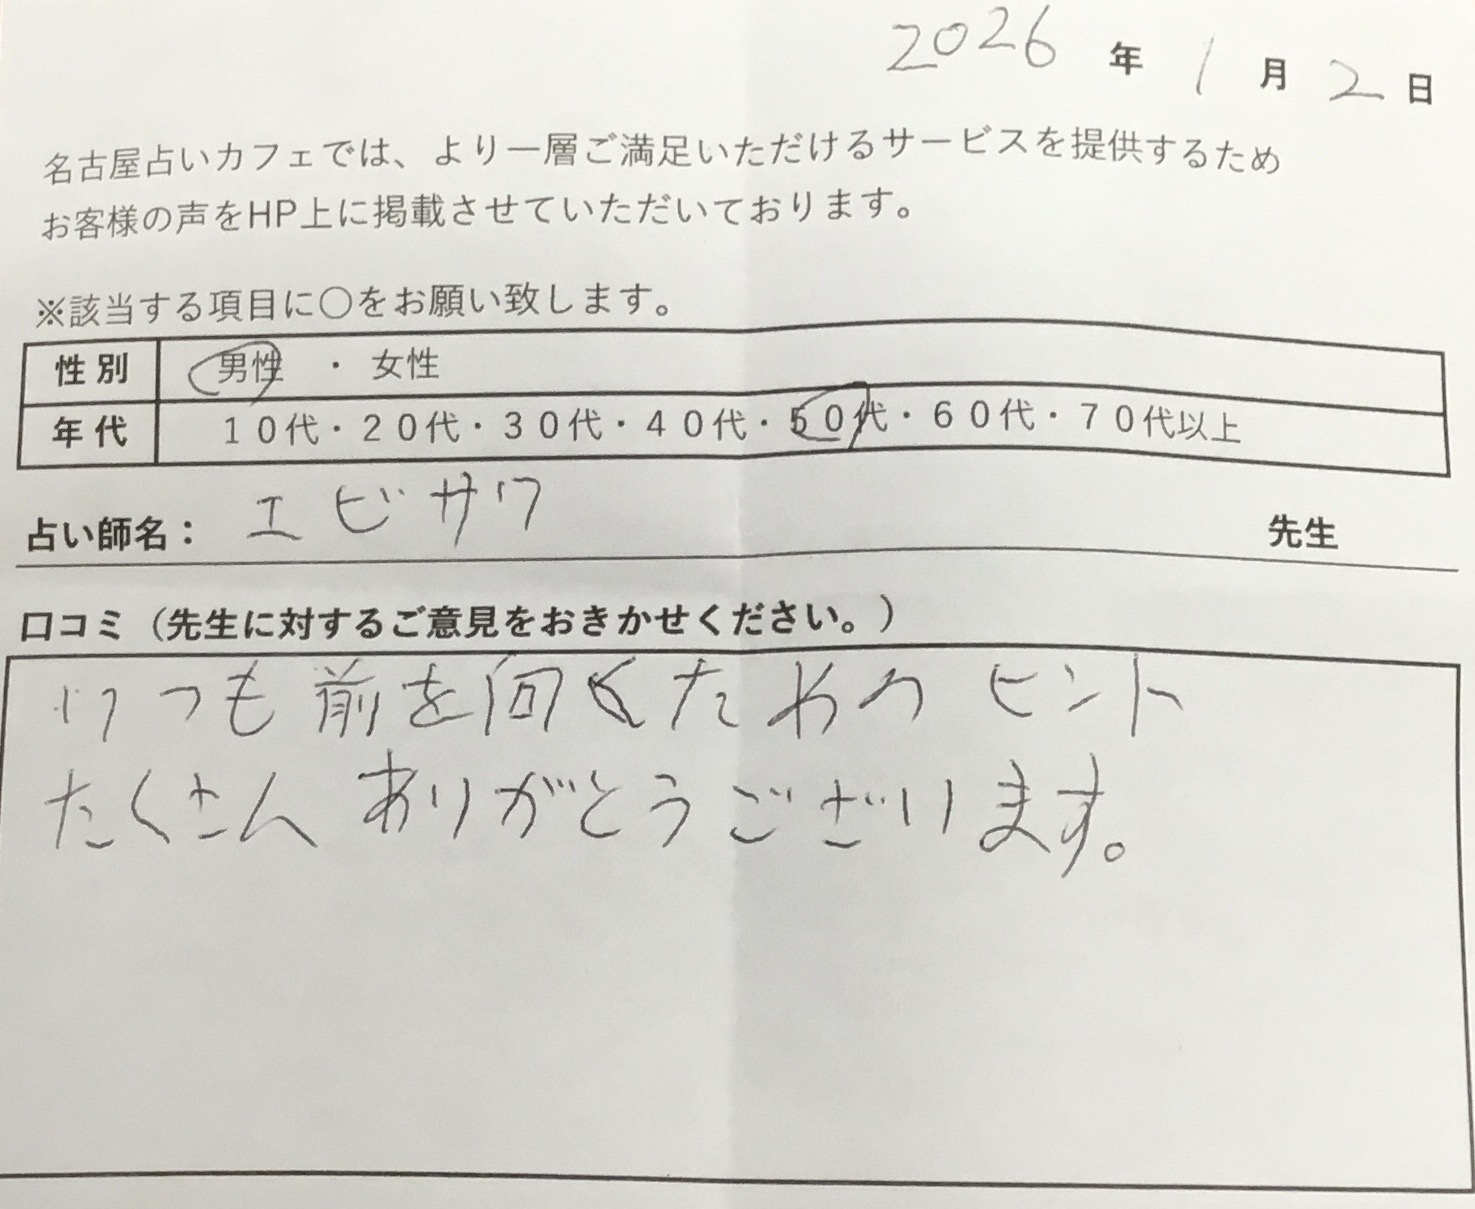 2026年1月2日
名古屋占いカフェでは、より一層ご満足いただけるサービスを提供するため
お客様の声をHP上に掲載させていただいております。
※該当する項目に〇をお願い致します。
性別 男性 ・ 女性
年代 10代・20代・30代・40代・50代・60代・70代以上
占い師名： エビサワ 先生
口コミ（先生に対するご意見をおきかせください。）
いつも前を向くためのヒント
たくさんありがとうございます。